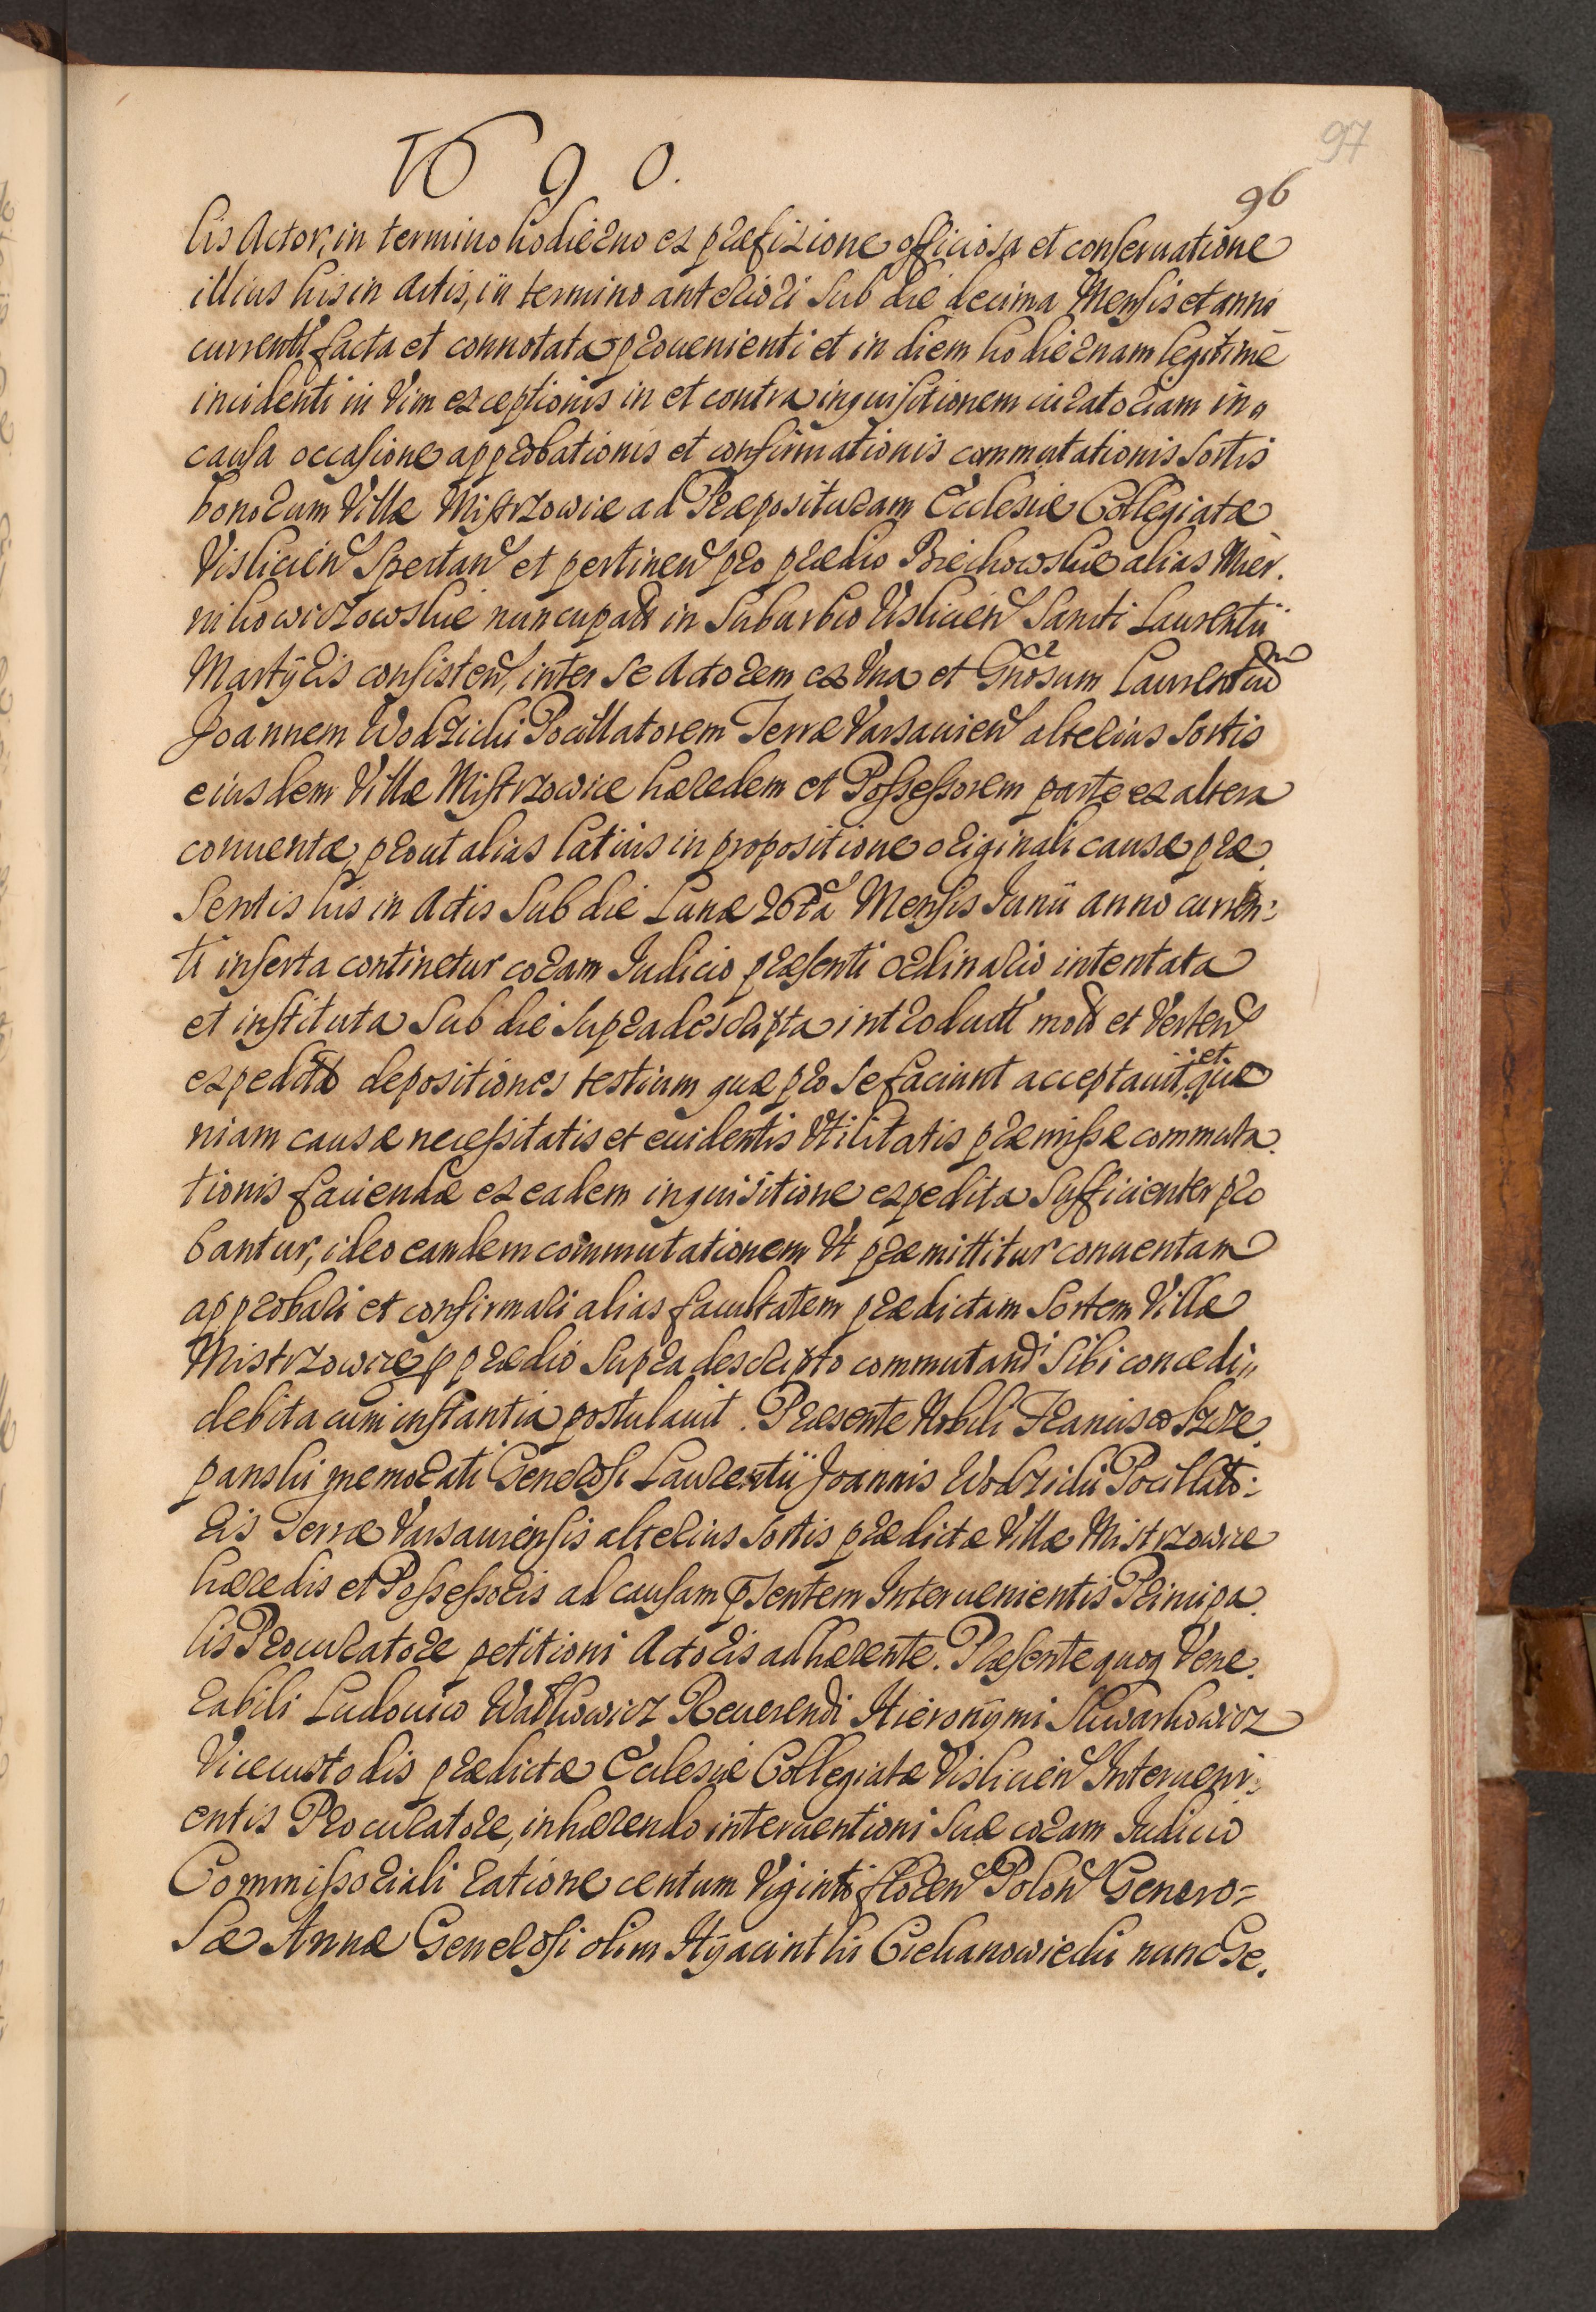 1690.
97
96
lis Actor, in termino hodierno ex præfixione officiosa et conseruatione
illius his in Actis, in termino anteriori Sub die decima Mensis et anni
currenti facta et connotata proueniente et in diem hodiernam legitime
incidenti in Vim exceptionis in et contra inquisitionem iuratoriam in
causa occasione approbationis et confirmationis commutationis Sortis
bonorum Villæ Mistrzowice ad Præposituram Ecclesiæ Collegiatæ
Vislicien Spectan et pertinen pro prædio Biechowskie alias Mier.
nikowiczowskie nuncupato in Suburbio Vislicien Sancti Laurentii
Martyris consisten, inter Se Actorem ex Vna et Gnosum Laurentium
Joannem Wodzicki Pocillatorem Terræ Varsauien alterius Sortis
eiusdem Villæ Mistrzowice hæredem et Possessorem parte ex altera
conuentæ, prout alias latius in propositione originali causæ præ.
Sentis his in Actis Sub die Lunæ 26ta Mensis Junii anno curren:
ti inserta continetur coram Judicio præsenti ordinario intentata
et instituta Sub die Supradescripta introduct mot et Verten
expedita depositiones testium quæ pro Se faciunt acceptauit, et quo
niam causæ necessitatis et euidentis Vtilitatis præmissæ commuta.
tionis faciendæ ex eadem inquisitione expedita Sufficienter pro
bantur, ideo eandem commutationem Vt præmittitur conuentam
approbari et confirmari alias facultatem prædictam Sortem Villæ
Mistrzowice p prædio Supra descripto commutandi Sibi concedi,,
debita cum instantia postulauit. Præsente Nobili Francisco Szcze.
panski memorati Generosi Laurentii Joannis Wodzicki Pocillato:
ris Terræ Varsauiensis alterius Sortis prædictæ Villæ Mistrzowice
hæredis et Possessoris ad causam pSentem Interuenientis Principa.
lis Procuratore petitioni Actoris adhærente. Præsente quoq Vene.
rabili Ludouico Wathowicz Reuerendi Hieronymi Skwarkowicz
Vicecustodis prædictæ Ecclesiæ Collegiatæ Vislicien Interueni:
entis Procuratore, inhærendo interuentioni Suæ coram Judicio
Commissoriali ratione centum Viginti floren Polon Genero=
Sæ Annæ Generosi olim Hyacinthi Ciechanowiecki nunc Ge.